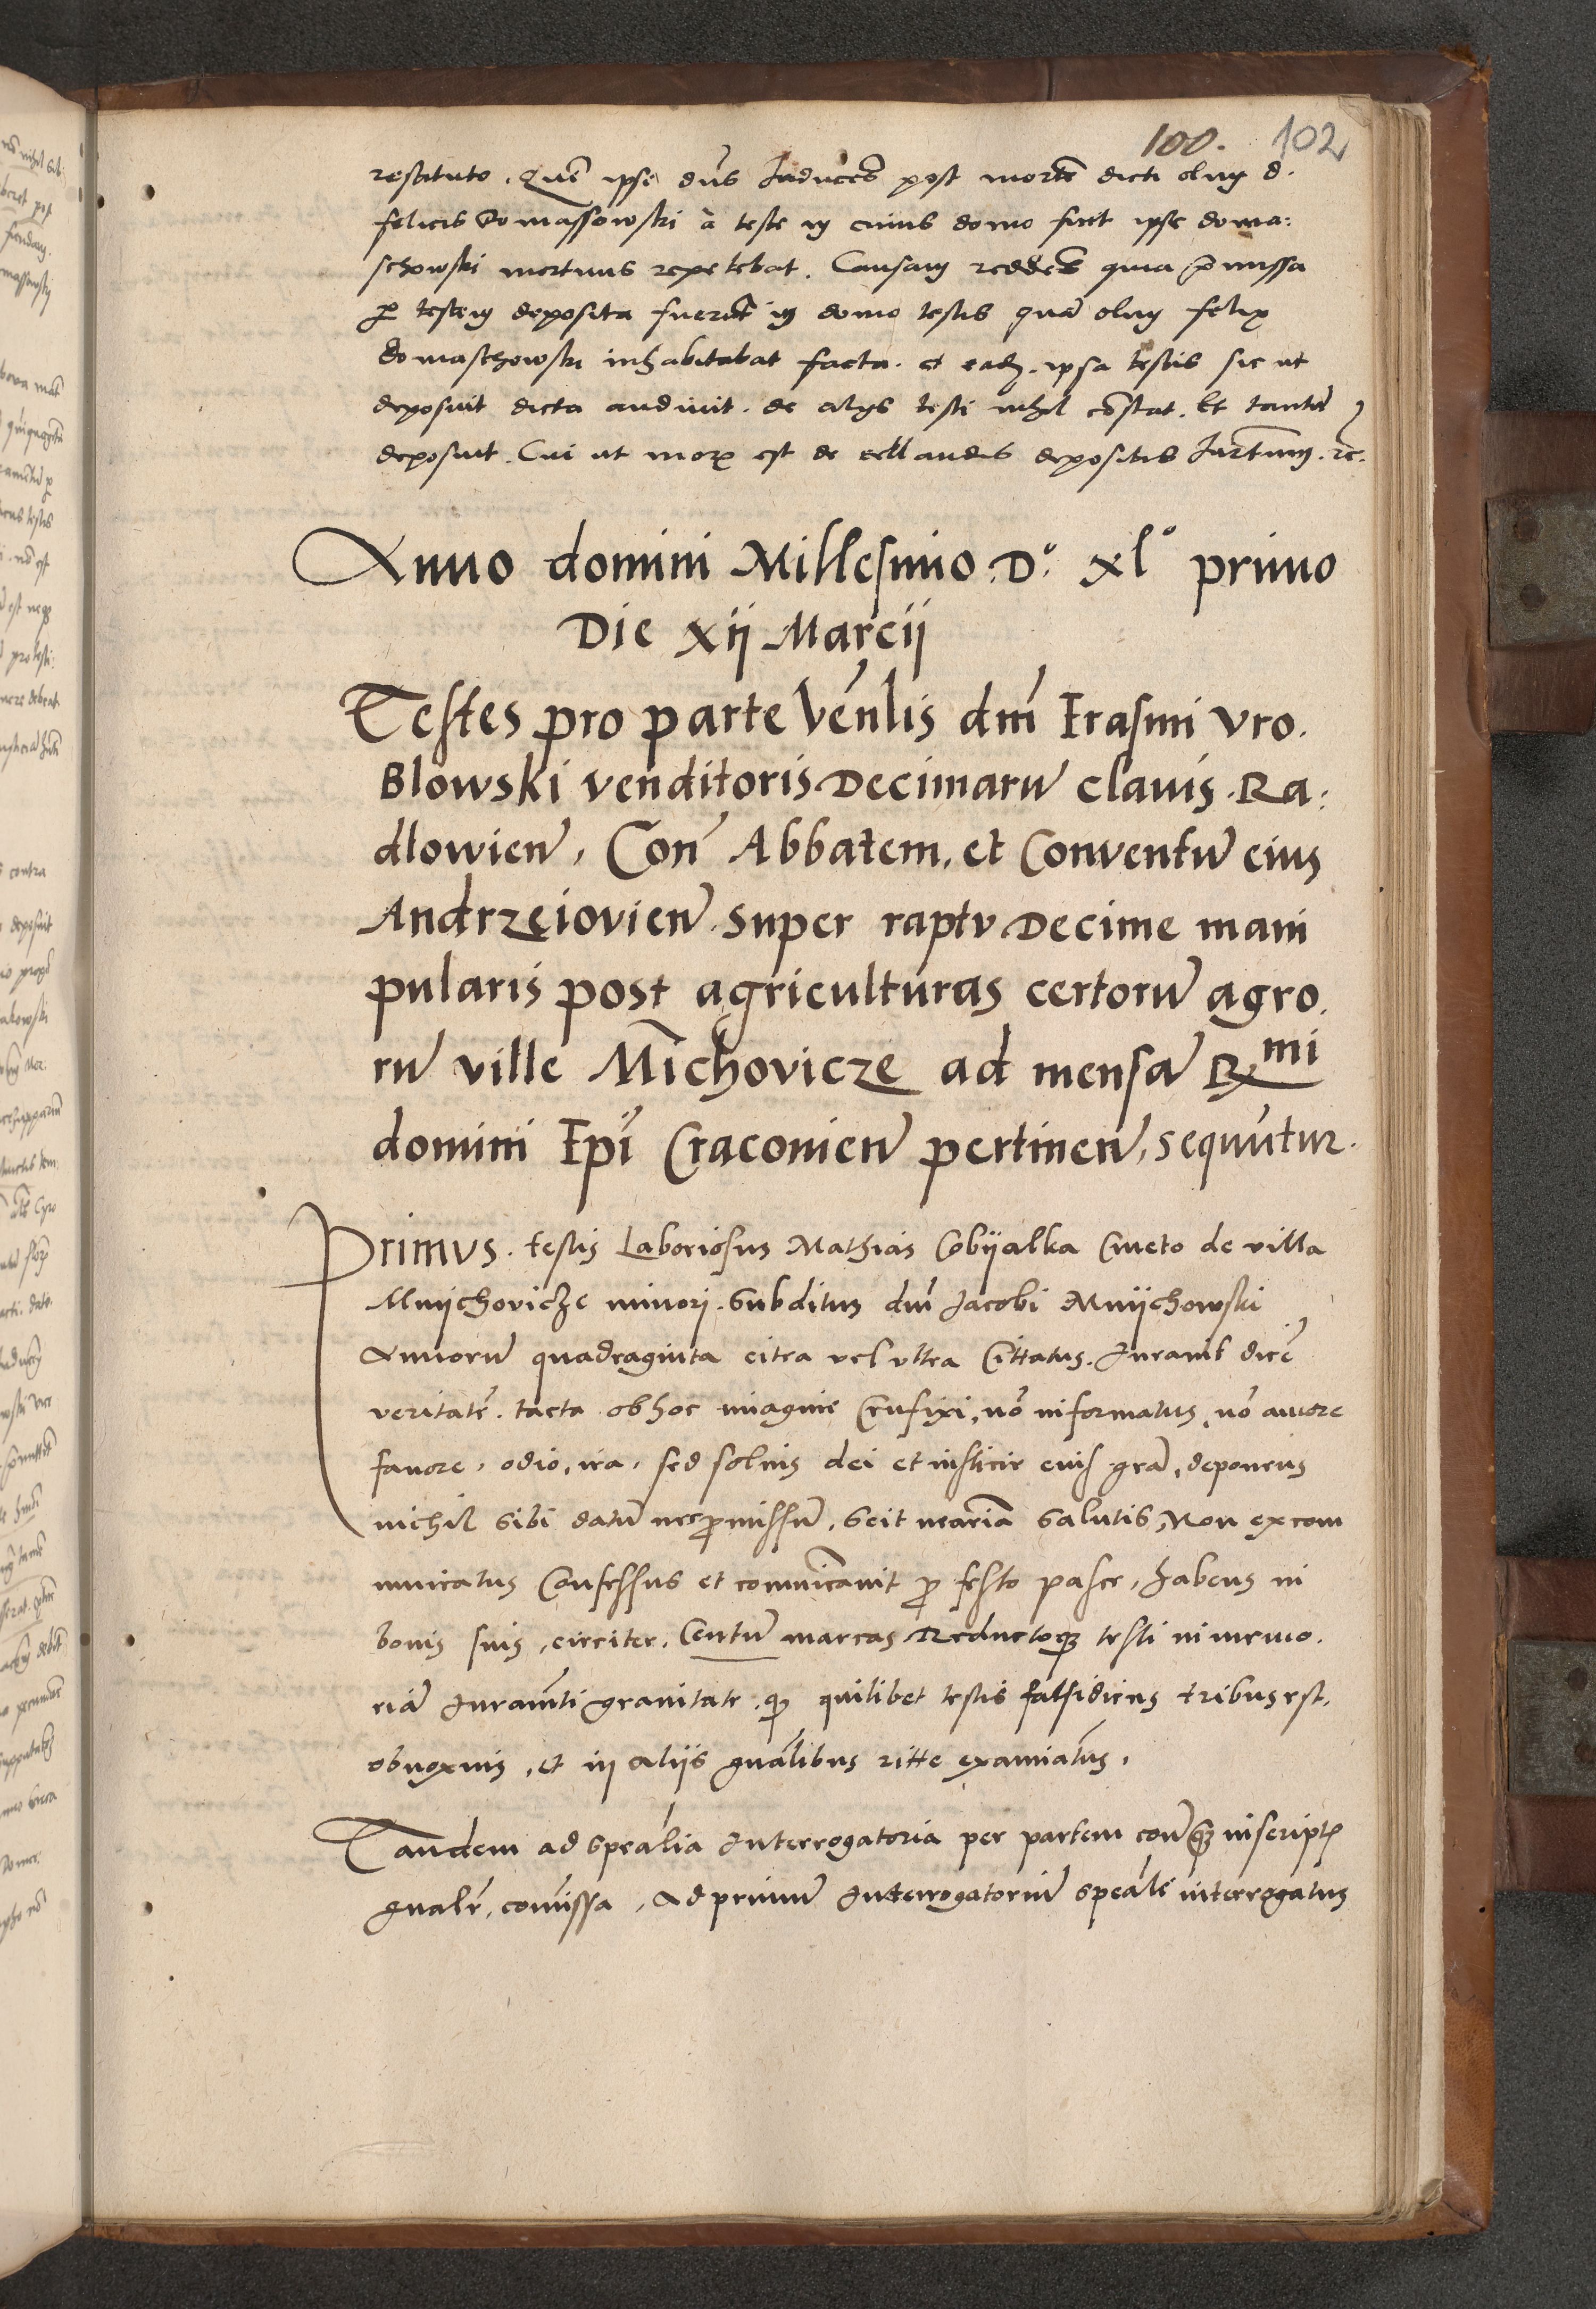 100. 102
restituto. Quē ipse dn̄s Inducēs post mortē dicti olim d.
felicis Domassowski à teste in cuius domo fuit ipse doma:
schowski mortuus repetebat. Causam reddēs quia p̄missa
ꝑ testem deposita fuerūt in domo testis quā olim felix
domaschowski inhabitabat facta. et eadē ipsa testis sic ut
deposuit dicta audiuit. de alijs testi nihil cōstat. Et tantū
deposuit. Cui ut moris est de cellandis depositis Iurtum. rc̄.
Anno domini Millesimo D° xl° primo
Die xij Marcij
Testes pro parte Ven̄lis dm̄ Erasmi Vro.
Blowski venditoris Decimarū clauis Ra:
dlowien̄, Con̄ Abbatem, et Conventū eius
Andrzeiovien̄ super raptu Decime mani
pularis post agriculturas certorū agro.
rū ville Michovicze ad mensā Rmi
domini Ep̄i Cracouien̄ pertinen̄, sequūtur.
Primus. testis Laboriosus Mathias Cobijalka Cmeto de villa
Mnijchovicze minorj. Subditus dn̄i Jacobi Mnijchowski
Annorū quadraginta citra vel vltra Cittatus. Iurauit dicē
veritatē. tacta ob hoc imagine Crufixi, nō informatus, nō amore
fauore, odio, ira, sed solius dei et insticie eius grā, deponens
nichil sibi datū nec ꝓmissū, Scit n̄eariā salutis, Non excom
municatus Confessus et comūicauit ꝓ festo pasce, habens in
bonis suis, circiter, Centū marcas Reductoqꝫ testi in memo.
riā Iuramn̄ti grauitate qꝫ quilibet testis falsidicus tribus est,
obnoxius, et in aliis gn̄alibus ritte examiatus.
Tandem ad spealia Interrogatoria per partem con̄ qꝫ inscriptis
gnalr̄, comissa, Ad primū Interrogatoriū speāli interrogatus